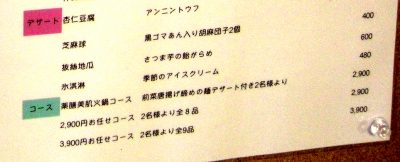 デザート 杏仁豆腐 アンニントウフ 400
芝麻球 黒ゴマあん入り胡麻団子2個 600
抜絲地瓜 さつま芋の飴がらめ 480
氷淇淋 季節のアイスクリーム
コース 薬膳美肌火鍋コース 前菜唐揚げ締めの麺デザート付き2名様より 2,900
2,900円お任せコース 2名様より全8品 2,900
3,900円お任せコース 2名様より全9品 3,900